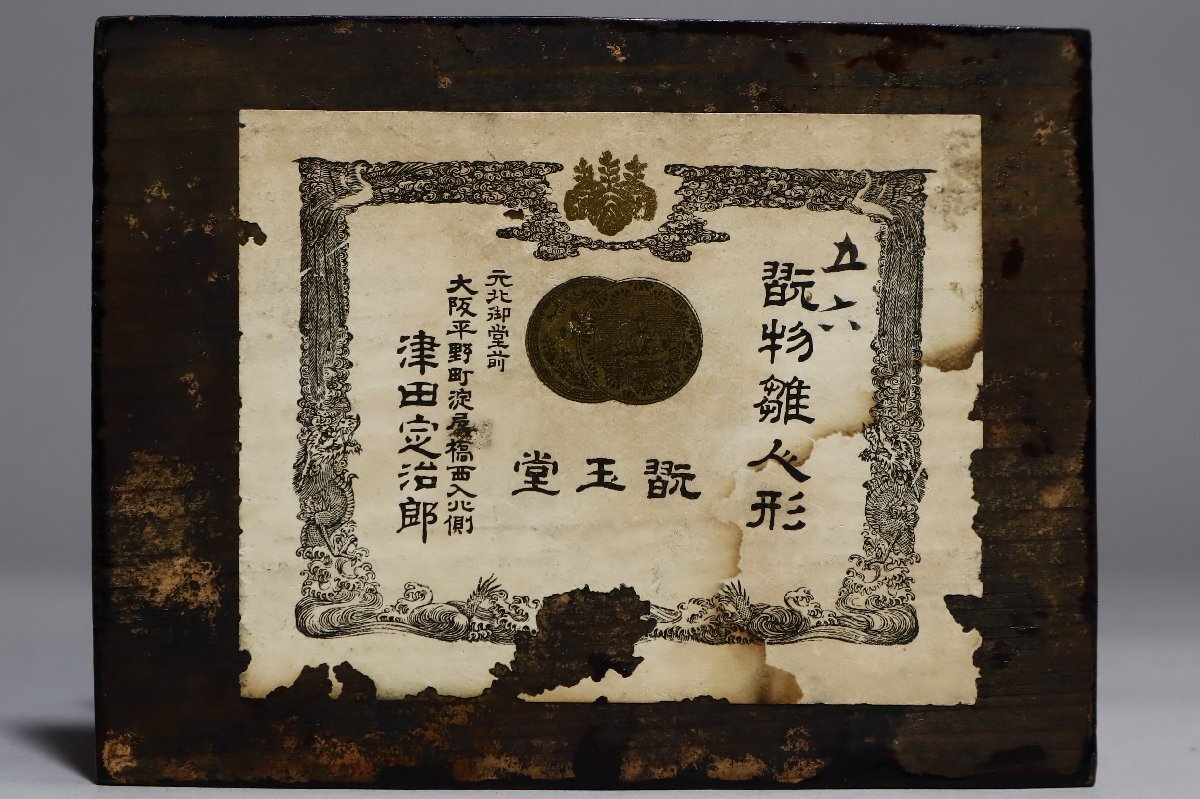 五六
翫物雛人形
翫玉堂
元北御堂前
大阪平野町淀屋橋西入北側
津田定治郎